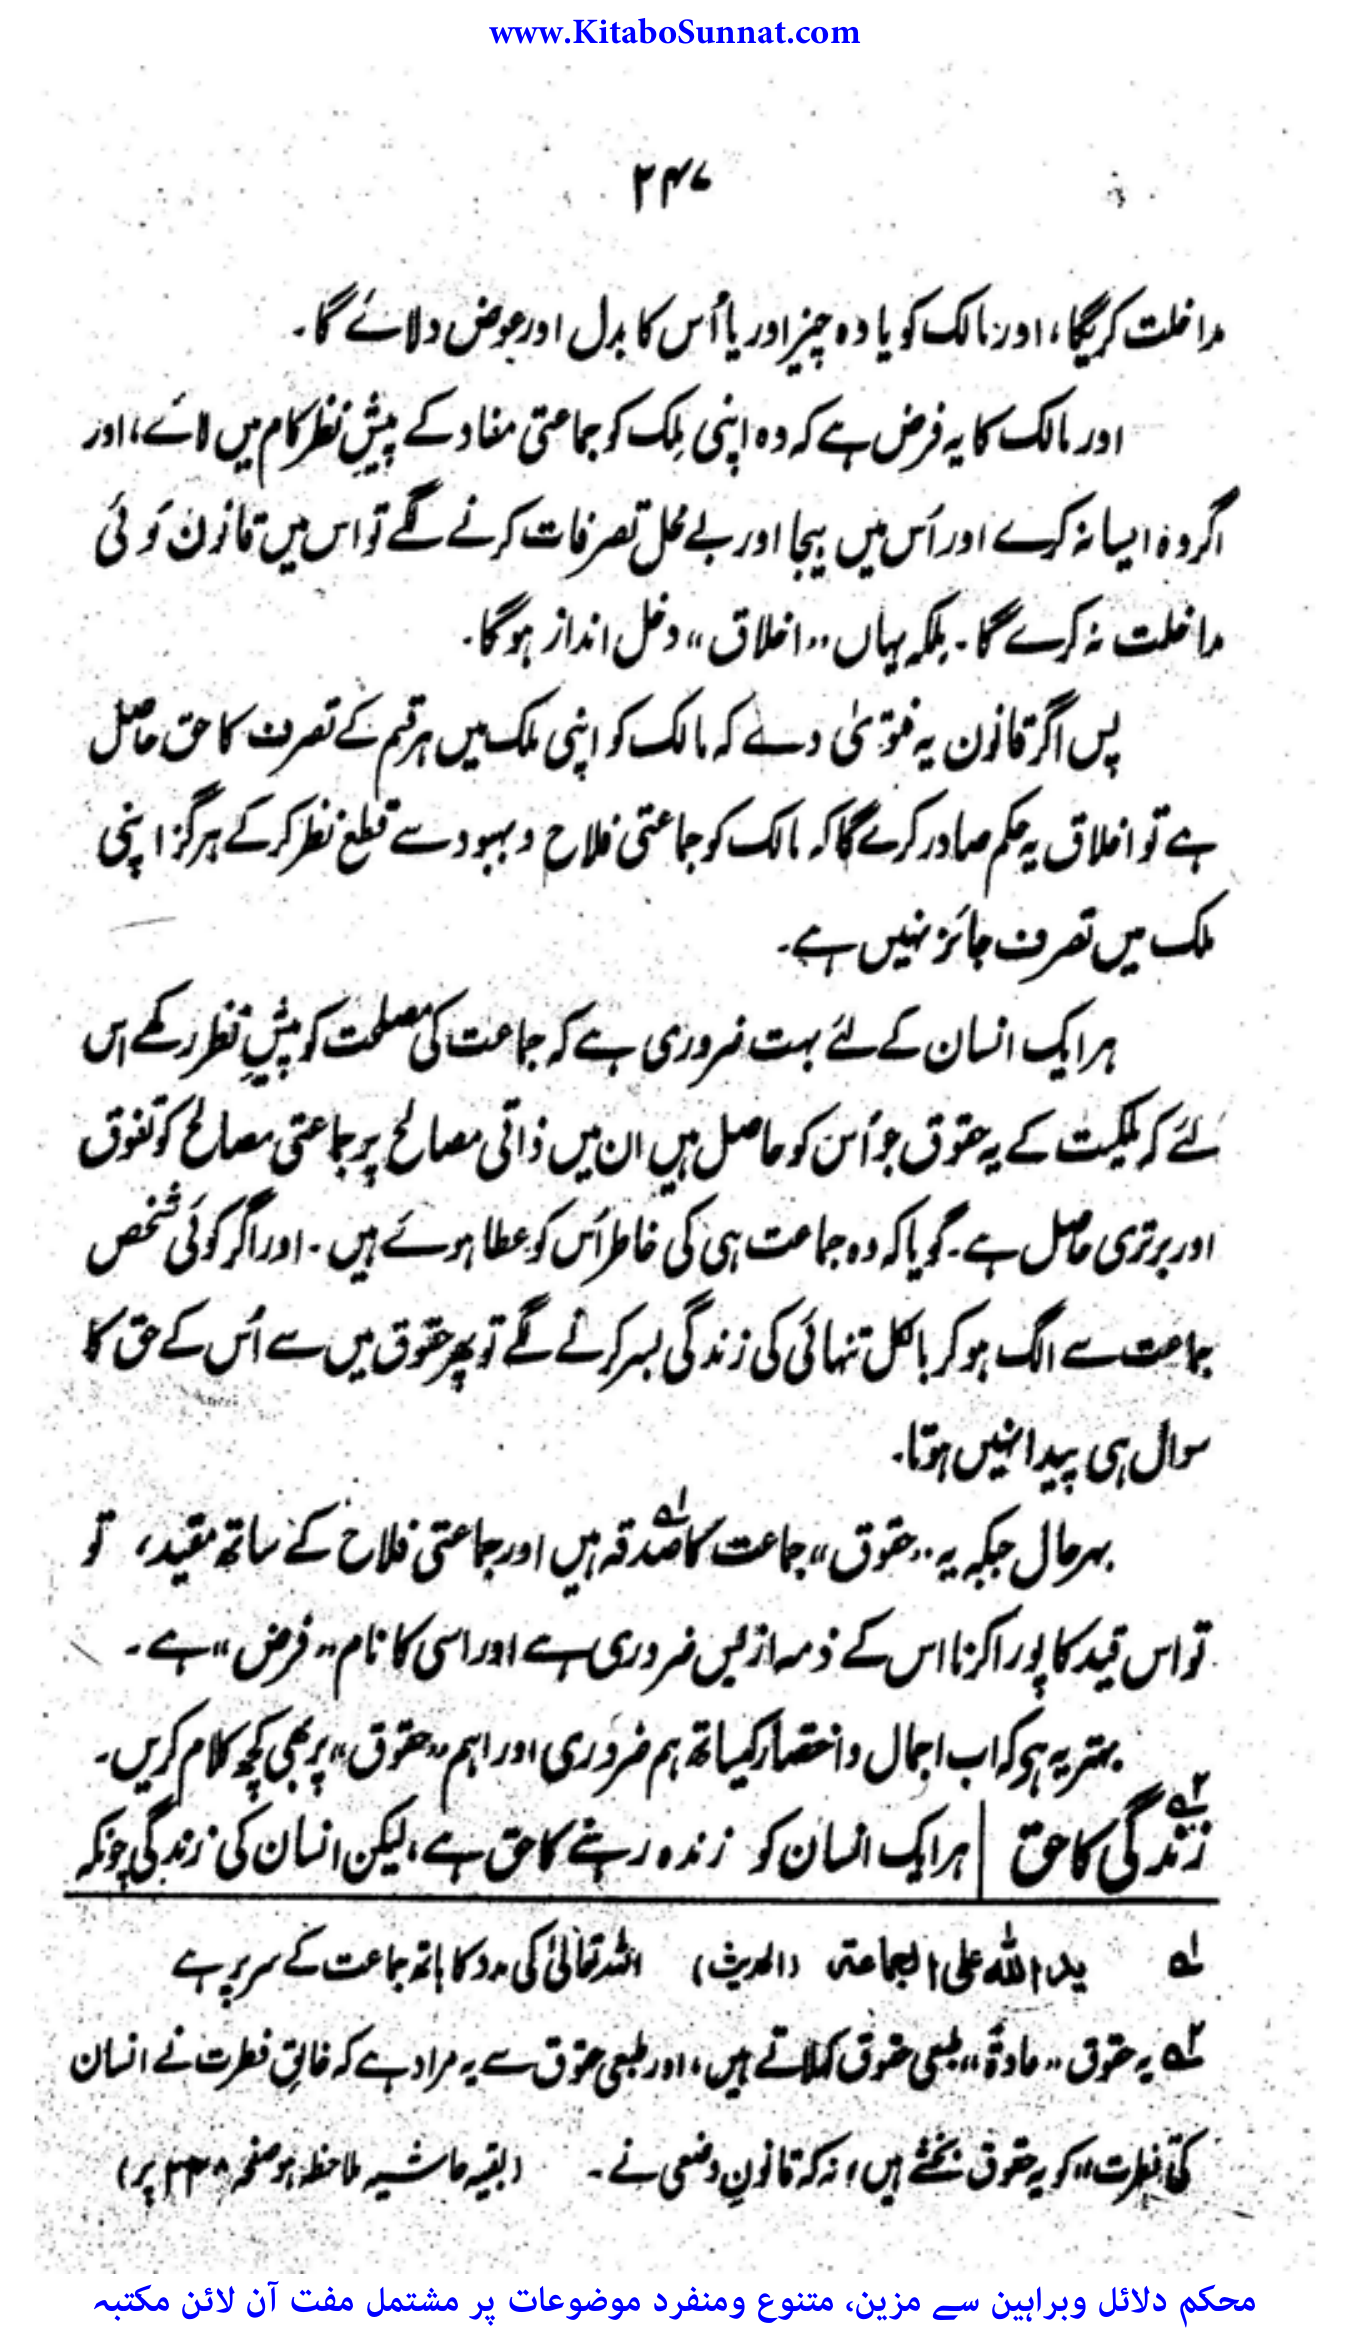 www.KitaboSunnat.com
۲۴۷
مداخلت کریگا، اور مالک کو یا وہ چیز اور یا اُس کا بدل اور عوض دلائے گا۔
اور مالک کا یہ فرض ہے کہ وہ اپنی مِلک کو جماعتی مفاد کے پیشِ نظر کام میں لائے، اور
اگر وہ ایسا نہ کرے اور اُس میں بیجا اور بے محل تصرفات کرنے لگے تو اس میں قانون کوئی
مداخلت نہ کرے گا۔ بلکہ یہاں ”اخلاق“ دخل انداز ہوگا۔
پس اگر قانون یہ فتویٰ دے کہ مالک کو اپنی ملک میں ہر قسم کے تصرف کا حق حاصل
ہے تو اخلاق یہ حکم صادر کرے گا کہ مالک کو جماعتی فلاح و بہبود سے قطع نظر کر کے ہرگز اپنی
ملک میں تصرف جائز نہیں ہے۔
ہر ایک انسان کے لئے بہت ضروری ہے کہ جماعت کی مصلحت کو پیشِ نظر رکھے اس
لئے کہ ملکیت کے یہ حقوق جو اُس کو حاصل ہیں ان میں ذاتی مصالح پر جماعتی مصالح کو تفوق
اور برتری حاصل ہے۔ گویا کہ وہ جماعت ہی کی خاطر اُس کو عطا ہوئے ہیں۔ اور اگر کوئی شخص
جماعت سے الگ ہو کر بالکل تنہائی کی زندگی بسر کرنے لگے تو پھر حقوق میں سے اُس کے حق کا
سوال ہی پیدا نہیں ہوتا۔
بہرحال جبکہ یہ ”حقوق“ جماعت کا صدقہ ہیں لہ اور جماعتی فلاح کے ساتھ مقید، تو
تو اس قید کا پورا کرنا اس کے ذمہ از بس ضروری ہے اور اسی کا نام ”فرض“ ہے۔
بہتر یہ ہو کہ اب اجمال و اختصار کیساتھ ہم ضروری اور اہم ”حقوق“ پر بھی کچھ کلام کریں۔
زندگی کا حق ۲ہ | ہر ایک انسان کو زندہ رہنے کا حق ہے، لیکن انسان کی زندگی چونکہ
لہ ید اللہ علی الجماعۃ (الحدیث) اللہ تعالیٰ کی مدد کا ہاتھ جماعت کے سر پر ہے
۲ہ یہ حقوق ”عادۃً“ طبعی حقوق کہلاتے ہیں، اور طبعی حقوق سے یہ مراد ہے کہ خالقِ فطرت نے انسان
کی ”فطرت“ کو یہ حقوق بخشے ہیں، نہ کہ قانونِ وضعی نے۔ (بقیہ حاشیہ ملاحظہ ہو صفحہ ۲۴۸ پر)
محکم دلائل وبراہین سے مزین، متنوع ومنفرد موضوعات پر مشتمل مفت آن لائن مکتبہ